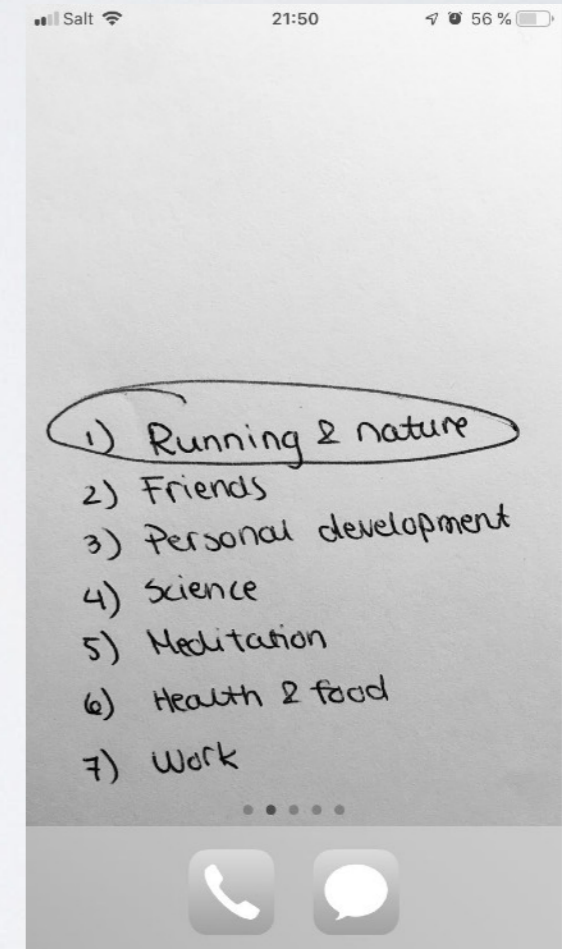 Salt 21:50 56 %
1) Running & nature
2) Friends
3) Personal development
4) Science
5) Meditation
6) Health & food
7) Work